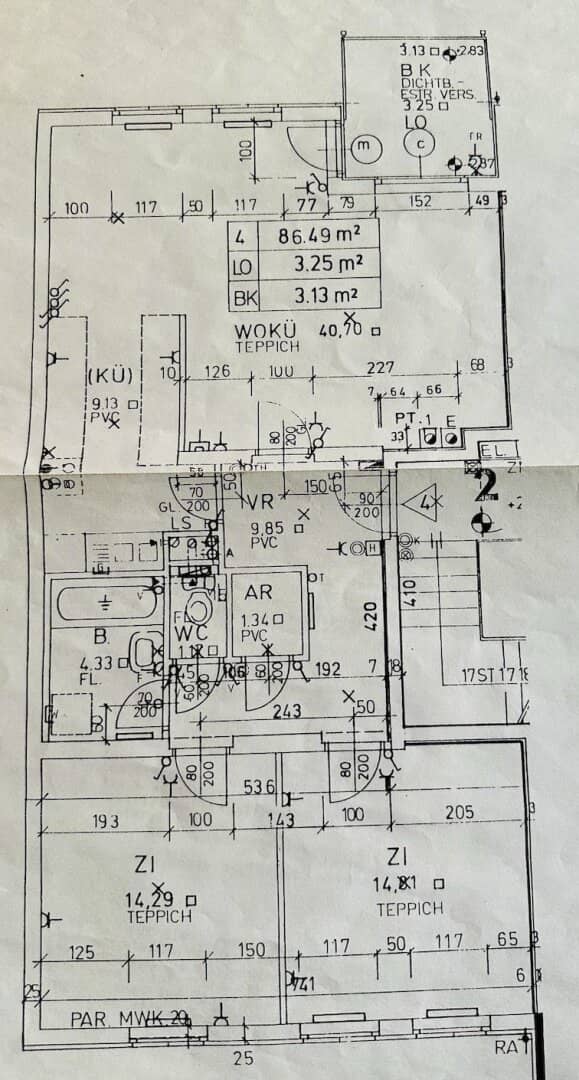 3.13 □ +2.83
BK
DICHTB.-
ESTR. VERS.
3.25 □
LO
m
c
2.87
100
100 117 50 117 77 79 152 49 3
4 86.49 m²
LO 3.25 m²
BK 3.13 m²
WOKÜ 40,70 □
TEPPICH
(KÜ)
9.13 □
PVC
10 126 100 227 68 3
7 64 66
PT. 1 E
33
80
200
GL
EL.
58
70
GL 200
50
150
65
90
200
4
2
VR
9,85 □
PVC
LS
A
H
K
AR
1.34 □
PVC
T
WC
FL
B.
4.33 □
FL.
420
410
17 ST 17 18
45
60
200
80
200
192
7
18
70
200
60
243
50
80
200
80
200
536
193 100 143 100 205 3
ZI
14,29 □
TEPPICH
ZI
14,81 □
TEPPICH
125 117 150 117 50 117 65 3
25
741
6
PAR. MWK. 20
25
RA